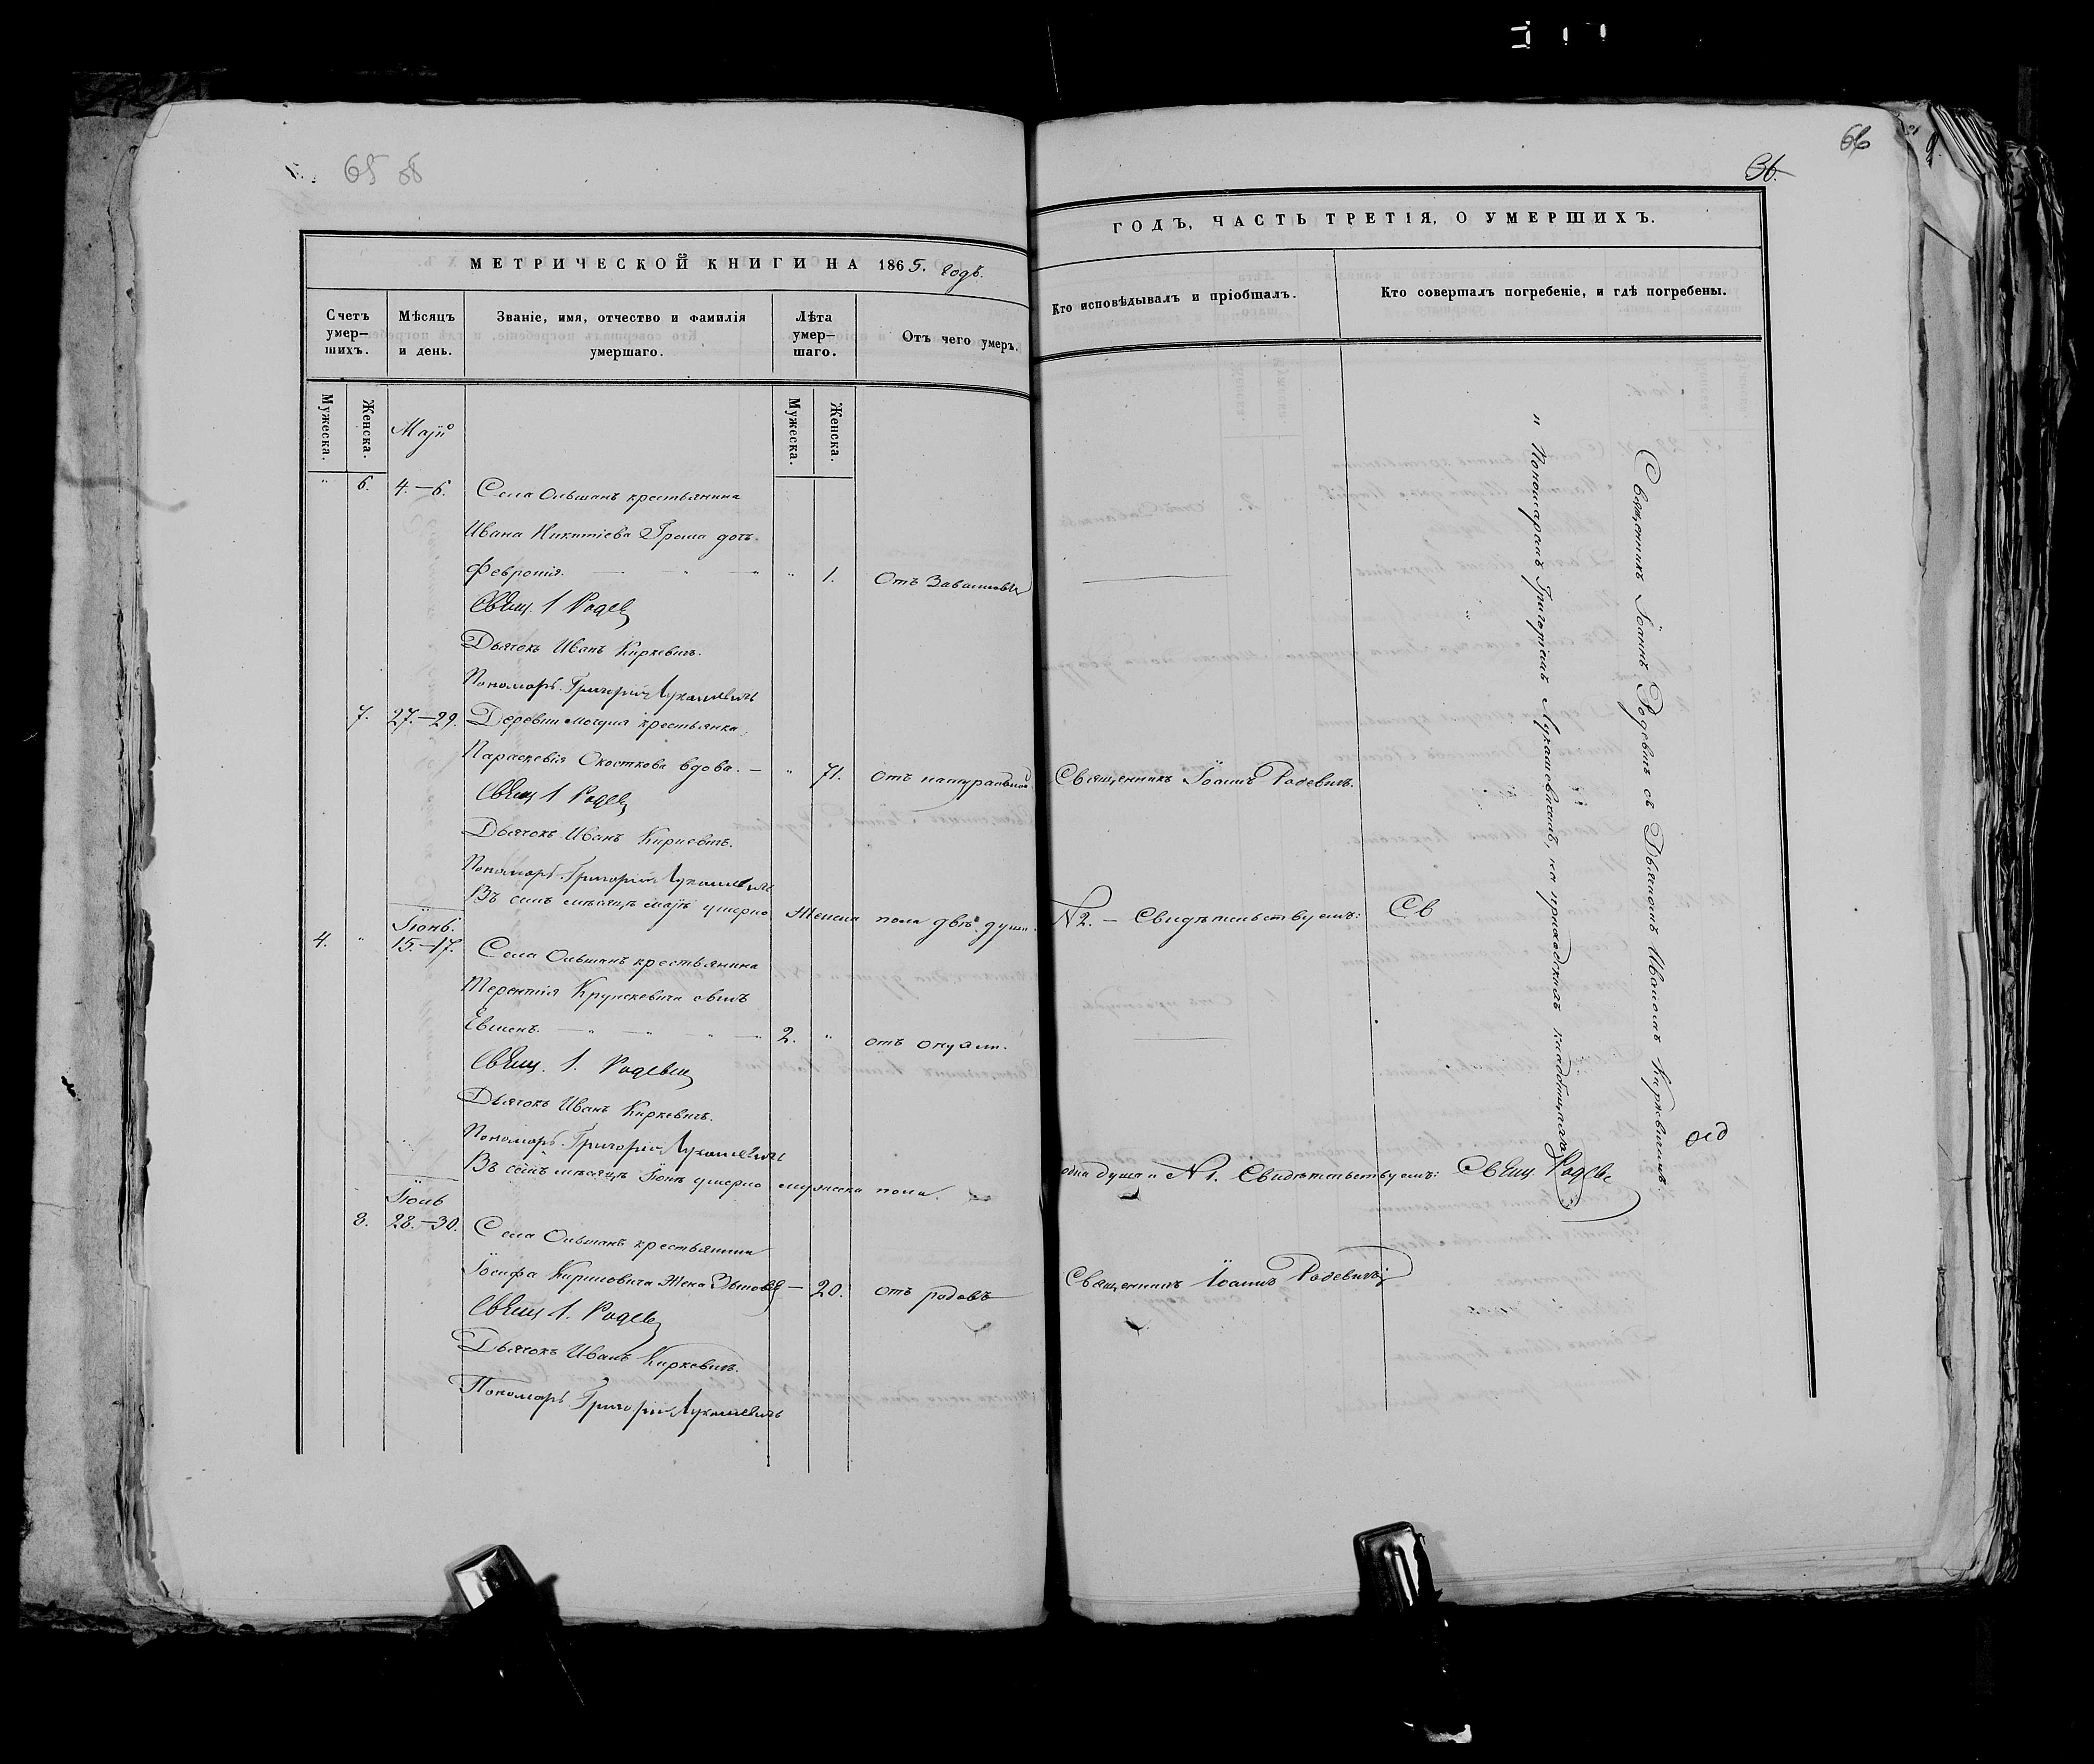 65
66
36.
МЕТРИЧЕСКОЙ КНИГИ НА 1865. годъ.
ГОДЪ, ЧАСТЬ ТРЕТІЯ, О УМЕРШИХЪ.
Счетъ умер-
шихъ.
Мѣсяцъ
и день.
Званіе, имя, отчество и фамилія
умершаго.
Лѣта
умер-
шаго.
Отъ чего умеръ.
Кто исповѣдывалъ и пріобщалъ.
Кто совершалъ погребеніе, и гдѣ погребены.
Мужеска.
Женска.
Мужеска.
Женска.
Маій
" 6. 4.–6. Села Ольшанъ крестьянина
Ивана Никитіева Грома дочь
Февронія. — " — " 1. Отъ
Свящ. І Родев
Дьячокъ Иванъ Киркевичъ.
Пономарь Григорій Лукашевичъ
7. 27.–29. Деревни крестьянка
Параскевія вдова. — " 71. отъ натуральной Священникъ Іоаннъ Родевичъ.
Свящ І Родев
Дьячокъ Иванъ Киркевичъ.
Пономарь Григорій Лукашевичъ
Въ семъ мѣсяцѣ маіѣ умерло Женска пола двѣ души N 2. – Свидѣтельствуемъ: Св
Іюнь.
4. " 15.–17. Села Ольшанъ крестьянина
Терентія сынъ
Евменъ. — " — " — 2. " отъ
Свящ. І. Родевич
Дьячокъ Иванъ Киркевичъ.
Пономарь Григорій Лукашевичъ
Въ семъ мѣсяцѣ Іюнѣ умерло мужеска пола одна душа N 1. Свидѣтельствуемъ: Свящ. Родев
Іюль
8. 28.–30. Села Ольшанъ крестьянина
Іосифа жена — 20. отъ родовъ Священникъ Іоаннъ Родевичъ
Свящ І. Родев
Дьячокъ Иванъ Киркевичъ.
Пономарь Григорій Лукашевичъ
Священникъ Іоаннъ Родевичъ съ Дьячкомъ Иваномъ Киркевичемъ
" Пономаремъ Григоріемъ Лукашевичемъ, на приходскихъ кладбищахъ